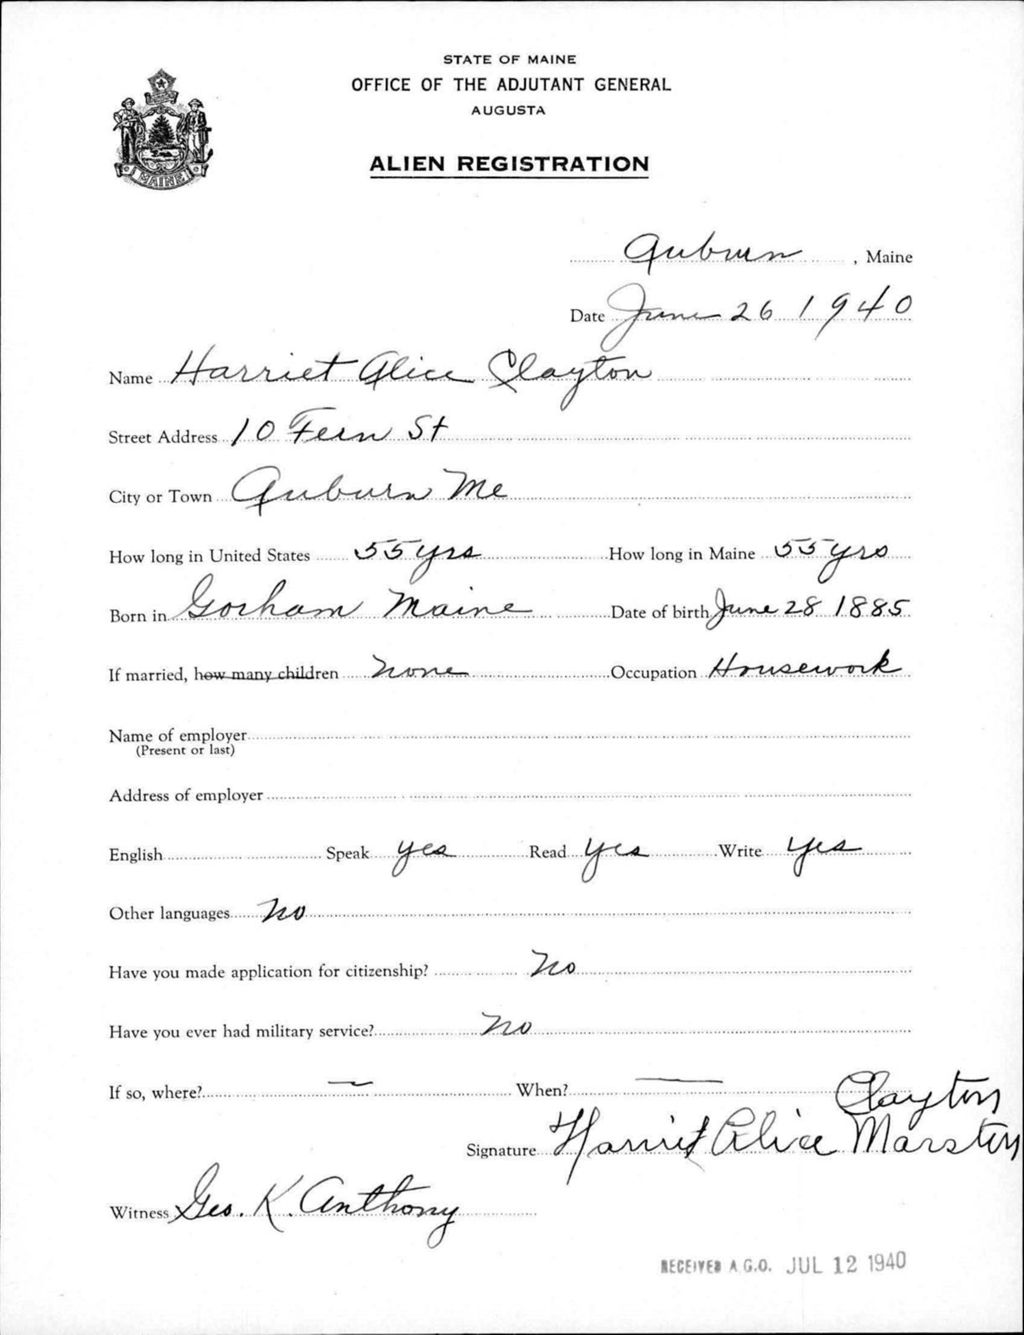 STATE OF MAINE
OFFICE OF THE ADJUTANT GENERAL
AUGUSTA
MAINE
ALIEN REGISTRATION
Auburn, Maine
Date June 26 1940
Name Harriet Alice Clayton
Street Address 10 Fern St
City or Town Auburn Me
How long in United States 55 yrs How long in Maine 55 yrs
Born in Gorham Maine Date of birth June 28 1885
If married, how many children none Occupation Housework
Name of employer
(Present or last)
Address of employer
English Speak yes Read yes Write yes
Other languages No
Have you made application for citizenship? No
Have you ever had military service? No
If so, where? — When? —
Clayton
Signature Harriet Alice Marston
Witness Geo. K. Anthony
RECEIVED A.G.O. JUL 12 1940